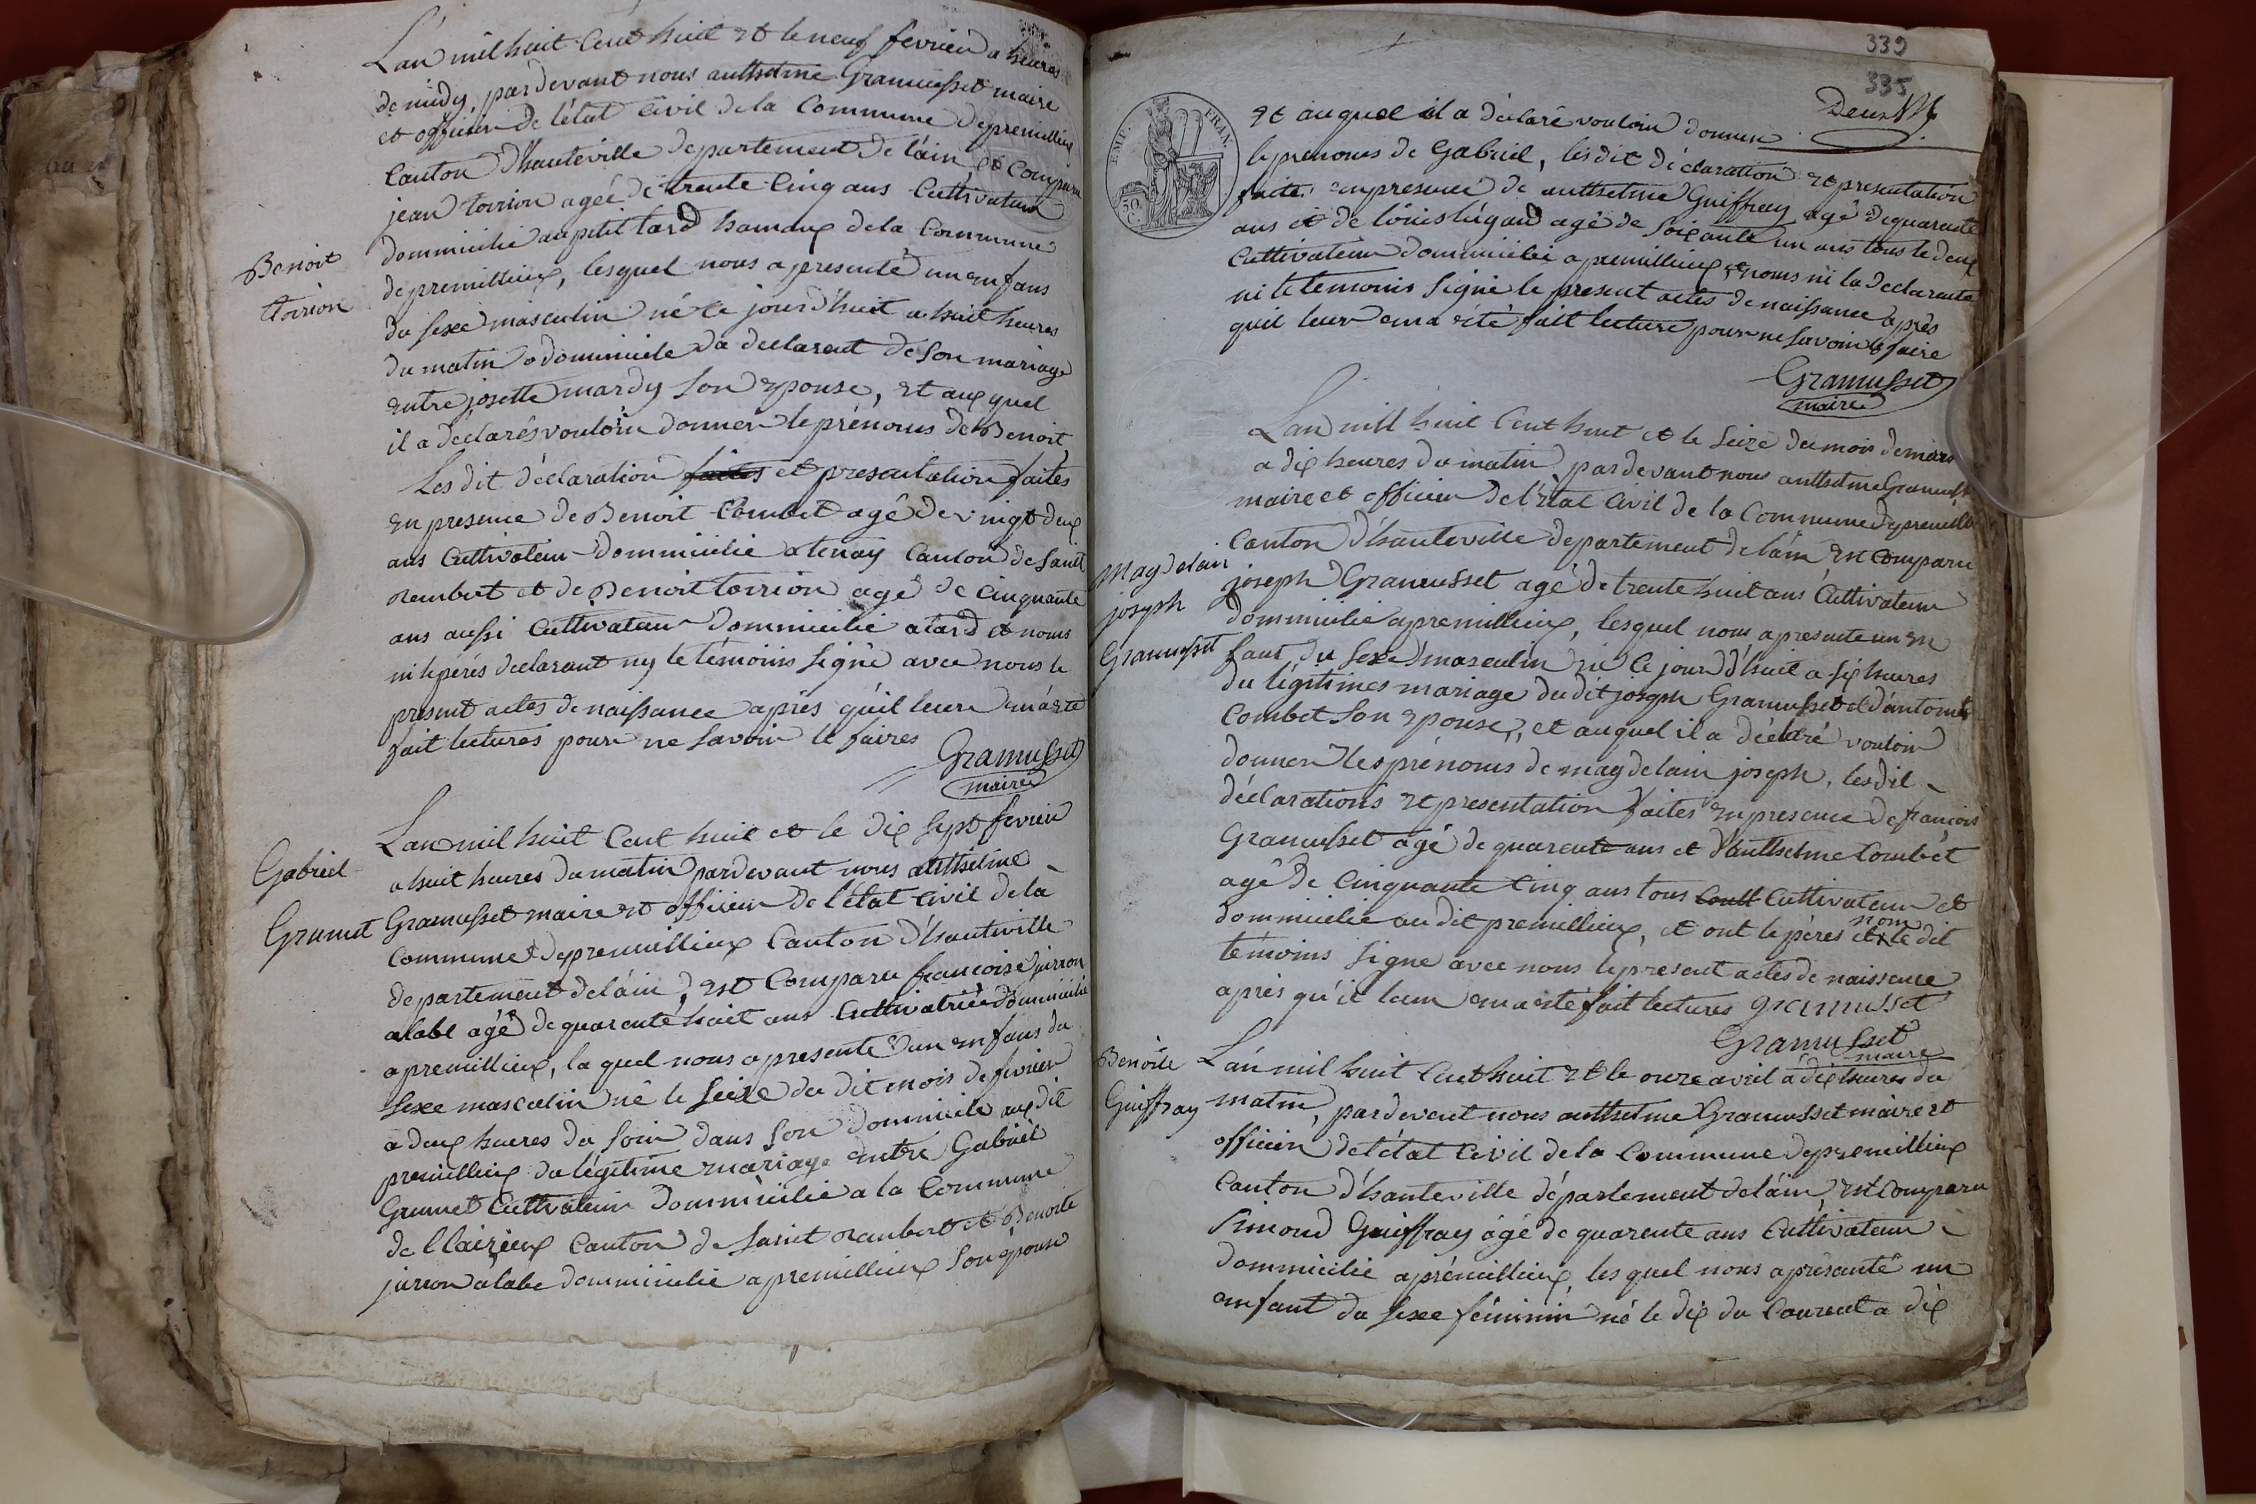 L'an mil huit Cent huit et le neuf fevrier a heures
de midy, pardevant nous anthelme Gramusset maire
et officier de l'état Civil de la Commune depremillieux
Canton d'hauteville departement de l'ain, est Comparu
jean torrion ageé de trente Cinq ans Cultivateur
dommicilié au petit tard hamaux dela Commune
depremillieux, lesquel nous a presenté un enfans
du sexe masculin né le jourd'huit a huit heures
du matin a dommicile du declarent de son mariage
entre josette mardy son epouse, et auxquel
il a déclarés vouloir donner le prénoms de Benoit
Les dit déclaration faites et presentation faites
en presence de Benoit Combet agé de vingt deux
ans Cultivateur dommicilié a tenay Canton de Saint
rambert et de Benoit torrion agé de Cinquante
ans aussi Cultivateur dommicilié a tard et nous
ni lepérés declarant ny le témoins signé avec nous le
present actes de naissance aprés quil leur en a eté
fait lectures pour ne savoir le faires
Gramusset
maire
Benoit
torrion
L'an mil huit Cent huit et le dix sept fevrier
a huit heures du matin pardevant nous anthelme
Gramusset maire et officier de l'état Civil de la
Commune depremillieux Canton d'hauteville
departement de láin, est Comparu francoise jurron
alabe agé de quarente huit ans Cultivatrice dommicilié
a premillieux, la quel nous a presenté un enfans du
sexe masculin né le seize du dit mois de fevrier
a deux heures du soir dans son dommicile aux dit
premillieux du légitime mariage entre Gabriel
Grumet Cultivateur dommicilié a la Commune
de Claizieux Canton de Saint rambert et Benoite
jurron alabe dommicilié a premillieux son épouse
Gabriel
Grumet
339
335
EMP. FRAN.
50 C.
et auquel il a déclaré vouloir donner
le prenoms de Gabriel, les dit déclaration et presentation
faite en presence de anthelme Guiffray agé de quarante
ans et de loüis lugand agé de soixante un ans tous le deux
Cultivateur dommicilié a premillieux, et nous ni la declarante
ni le temoins signé le present actes de naissance aprés
quil leur en a eté fait lecture pour ne savoir le faire
Gramusset
maire
L'an mill huit Cent huit et le seize du mois de mars
a dix heures du matin, pardevant nous anthelme Gramusset
maire et officier de l'état Civil de la Commune depremillieux
Canton d'hauteville departement de láin est Comparu
joseph Gramusset agé de trente huit ans Cultivateur
dommicilié a premillieux, lesquel nous a presente un en
fant du sexe masculin né le jour d'huit a six heures
du légitimes mariage du dit joseph Gramusset et d'antoinette
Combet son epouse, et auquel il a déclaré vouloir
donner les prénoms de magdelain joseph, les dit
déclarations et presentation faites en presence de francois
Gramusset agé de quarente ans et d'anthelme Combet
agé de Cinquante Cinq ans tous Coult Cultivateur et
dommicilié au dit premillieux, et ont le pères et le dit
nom
témoins signe avec nous le present actes de naissence
après qu'il leur en a eté fait lectures gramusset
Gramusset
maire
magdelain
joseph
Gramusset
L'an mil huit Cent huit et le onze avril a dix heures du
matin, pardevent nous anthelme Gramusset maire et
officier de l'état Civil de la Commune depremillieux
Canton d'hauteville département de láin, est Comparu
Simond Guiffray ágé de quarente ans Cultivateur
dommicilié a prémillieux, les quel nous a présanté un
enfant du sexe féminin né le dix du Courent a dix
Benoite
Guiffray